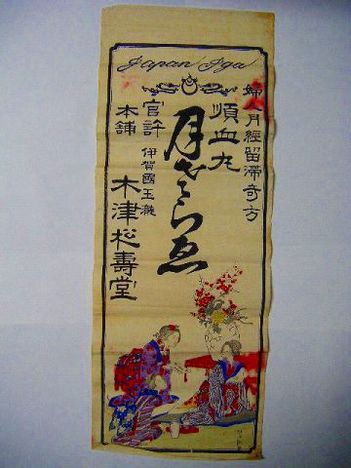 Japan Iga
婦人月經留滞奇方
順血丸
月さらゑ
官許
本舗
伊賀國玉瀧
木津松壽堂